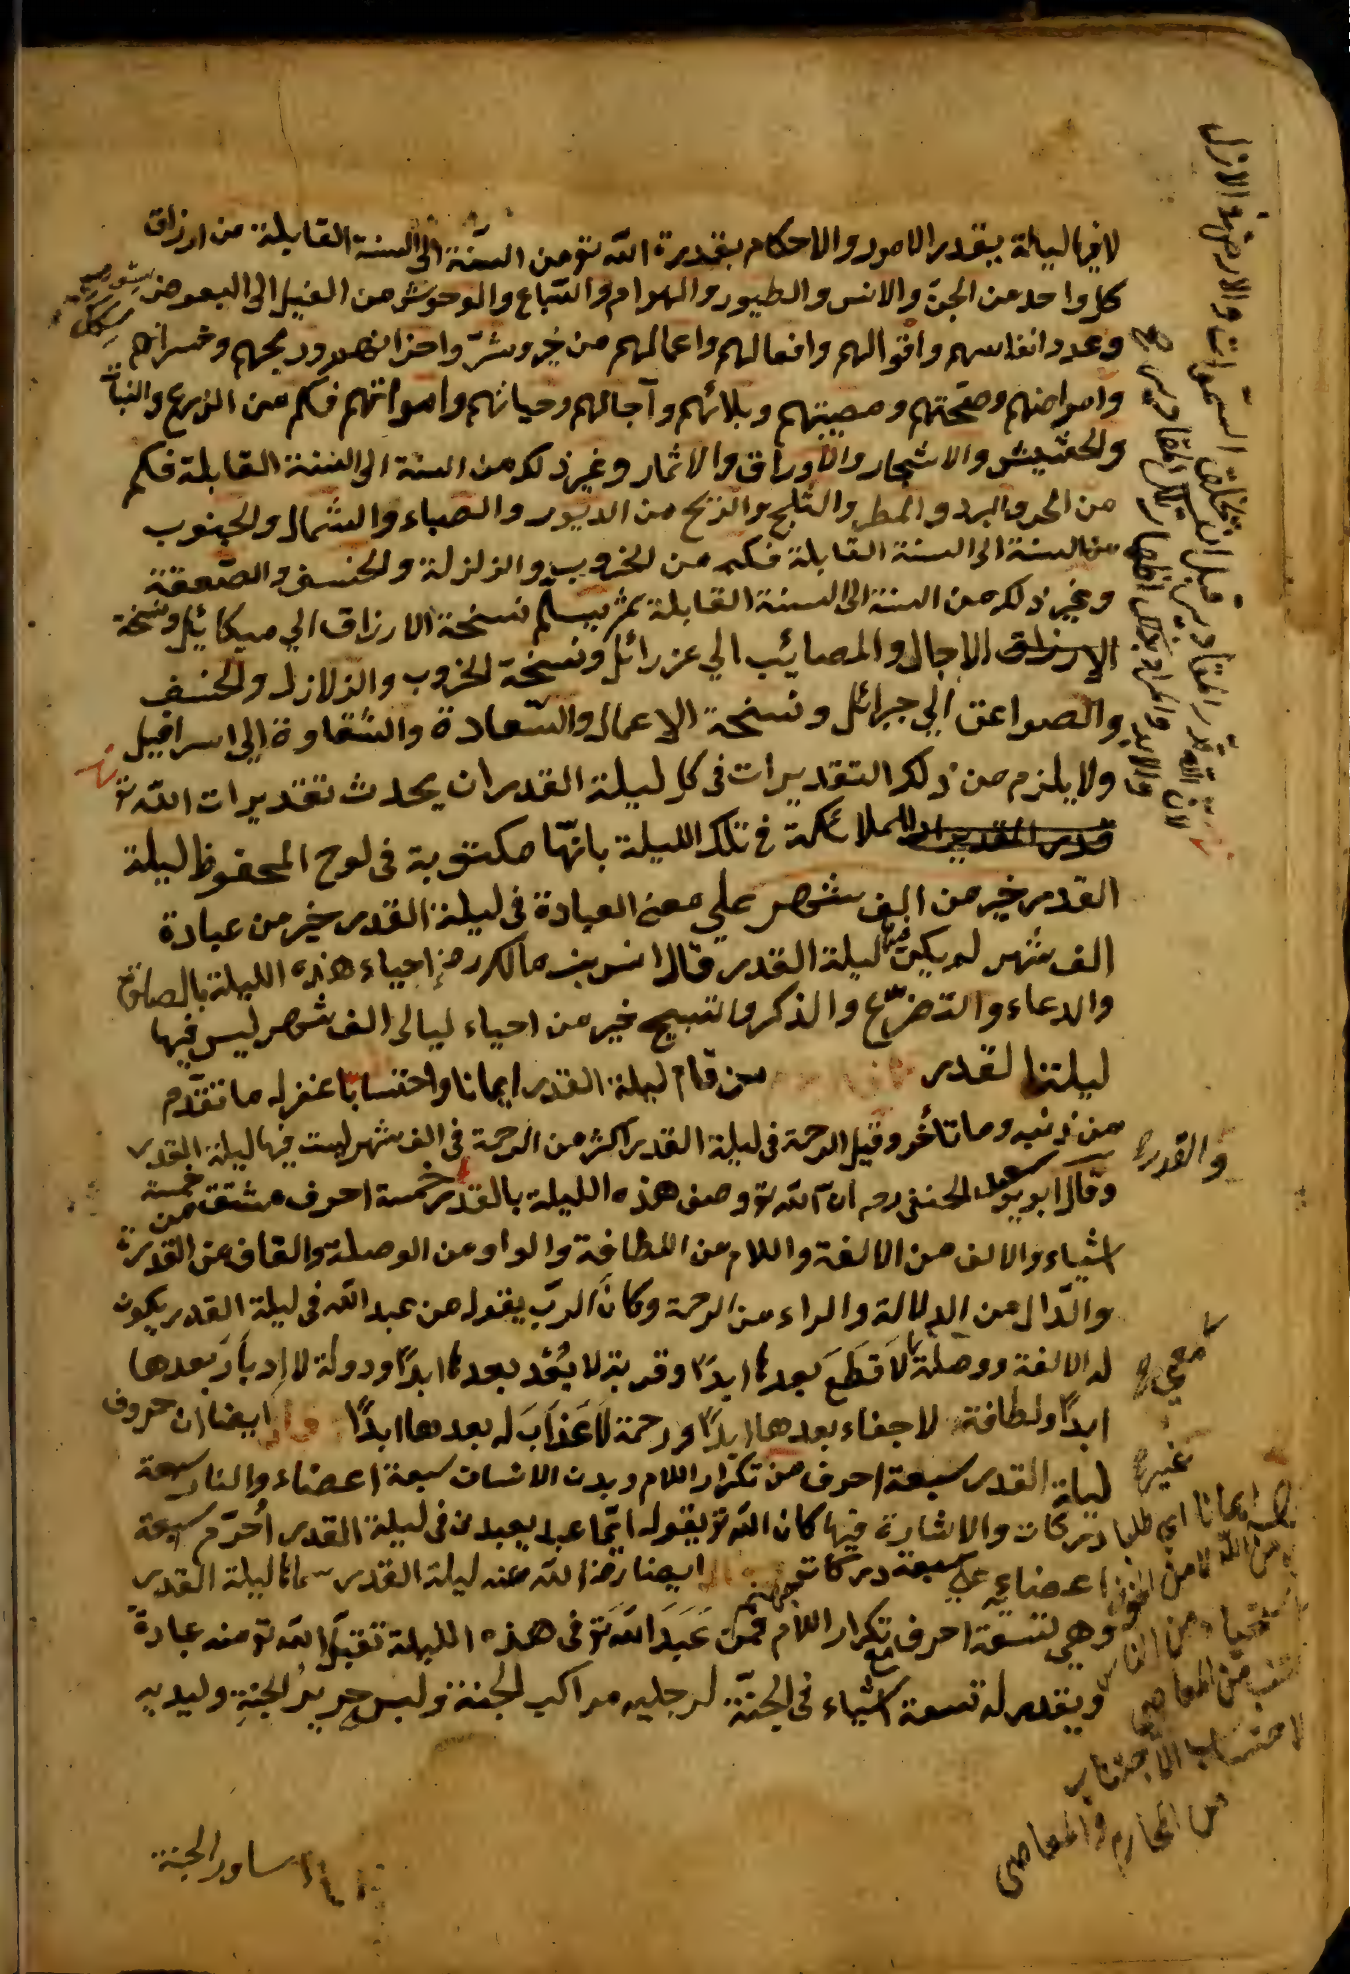 لانها ليلة يقدر الامور والاحكام بقدرة الله تو من السنة الى السنة القابلة من ارزاق
كل واحد من الجن والانس والطيور والهوام والسباع والوحوش من الفيل الى البعوض
وعدد انفاسهم واقوالهم وافعالهم واعمالهم من خير وشر واحزانهم وربحهم وخسرانهم
وامراضهم وصحتهم ومصيبتهم وبلائهم وآجالهم وحياتهم وامواتهم فكم من الزرع والنبات
والحشيش والاشجار والاوراق والاثمار وغير ذلك من السنة الى السنة القابلة فكم
من الحر والبرد والمطر والثلج والريح من الدبور والصباء والشمال والجنوب
من السنة الى السنة القابلة فكم من الخروب والزلزلة والخسف والصعقة
وغير ذلك من السنة الى السنة القابلة ثم يسلم نسخة الارزاق الي ميكائيل ونسخة
الارزاق الاجال والمصائب الي عزرائل ونسخة الخروب والزلازل والخسف
والصواعق الي جبرائل ونسخة الاعمال والسعادة والشقاوة الي اسرافيل
ولا يلزم من ذلك التقديرات في كل ليلة القدر ان يحدث تقديرات الله تو
للملائكة في تلك الليلة بانها مكتوبة في لوح المحفوظ ليلة
القدر خير من الف شهر علي معنى العبادة في ليلة القدر خير من عبادة
الف شهر لم يكن فيها ليلة القدر قال انس بن مالك رض احياء هذه الليلة بالصلوة
والدعاء والتضرع والذكر والتسبيح خير من احياء ليالى الف شهر ليس فيها
ليلة القدر من قام ليلة القدر ايمانا واحتسابا غفر له ما تقدم
من ذنبه وما تأخر وقيل الرحمة في ليلة القدر اكثر من الرحمة في الف شهر ليست فيها ليلة القدر
وقال ابو سعيد الحنفى رحه ان الله تو وصف هذه الليلة بالقدر خمسة احرف مشتق من خمسة
اشياء والالف من الالفة واللام من اللطافة والواو من الوصلة والقاف من القدرة
والدال من الدلالة والراء من الرحمة وكان الرب يقول من عبد الله في ليلة القدر يكون
له الالفة ووصلة لا قطع بعدها ابدا وقربة لا بعد بعدها ابدا ودولة لا ادبار بعدها
ابدا ولطافة لا جفاء بعدها ابدا ورحمة لا عذاب له بعدها ابدا وقال ايضا ان حروف
ليلة القدر سبعة احرف من تكرار اللام وبدن الانسان سبعة اعضاء والنار سبعة
دركات والاشارة فيها كان الله تو يقول ايما عبد يعبدنى في ليلة القدر احرم سبعة
اعضاءه علي سبعة دركات جهنم ايضا رض الله عنه ليلة القدر ليلة القدر
وهي تسعة احرف مع تكرار اللام فمن عبد الله تو في هذه الليلة تقبل الله تو منه عبادة
ويقدر له تسعة اشياء في الجنة لرجليه مراكب الجنة ولبس حرير الجنة وليديه
اساور الجنة
لان الله قدر المقادير قبل ان يخلق السموات والارض في الازل
والقدر
صح
غيره
ايمانا اي طلبا
من المعاصي
الاحتساب الاجتناب
من المحارم والمعاصى